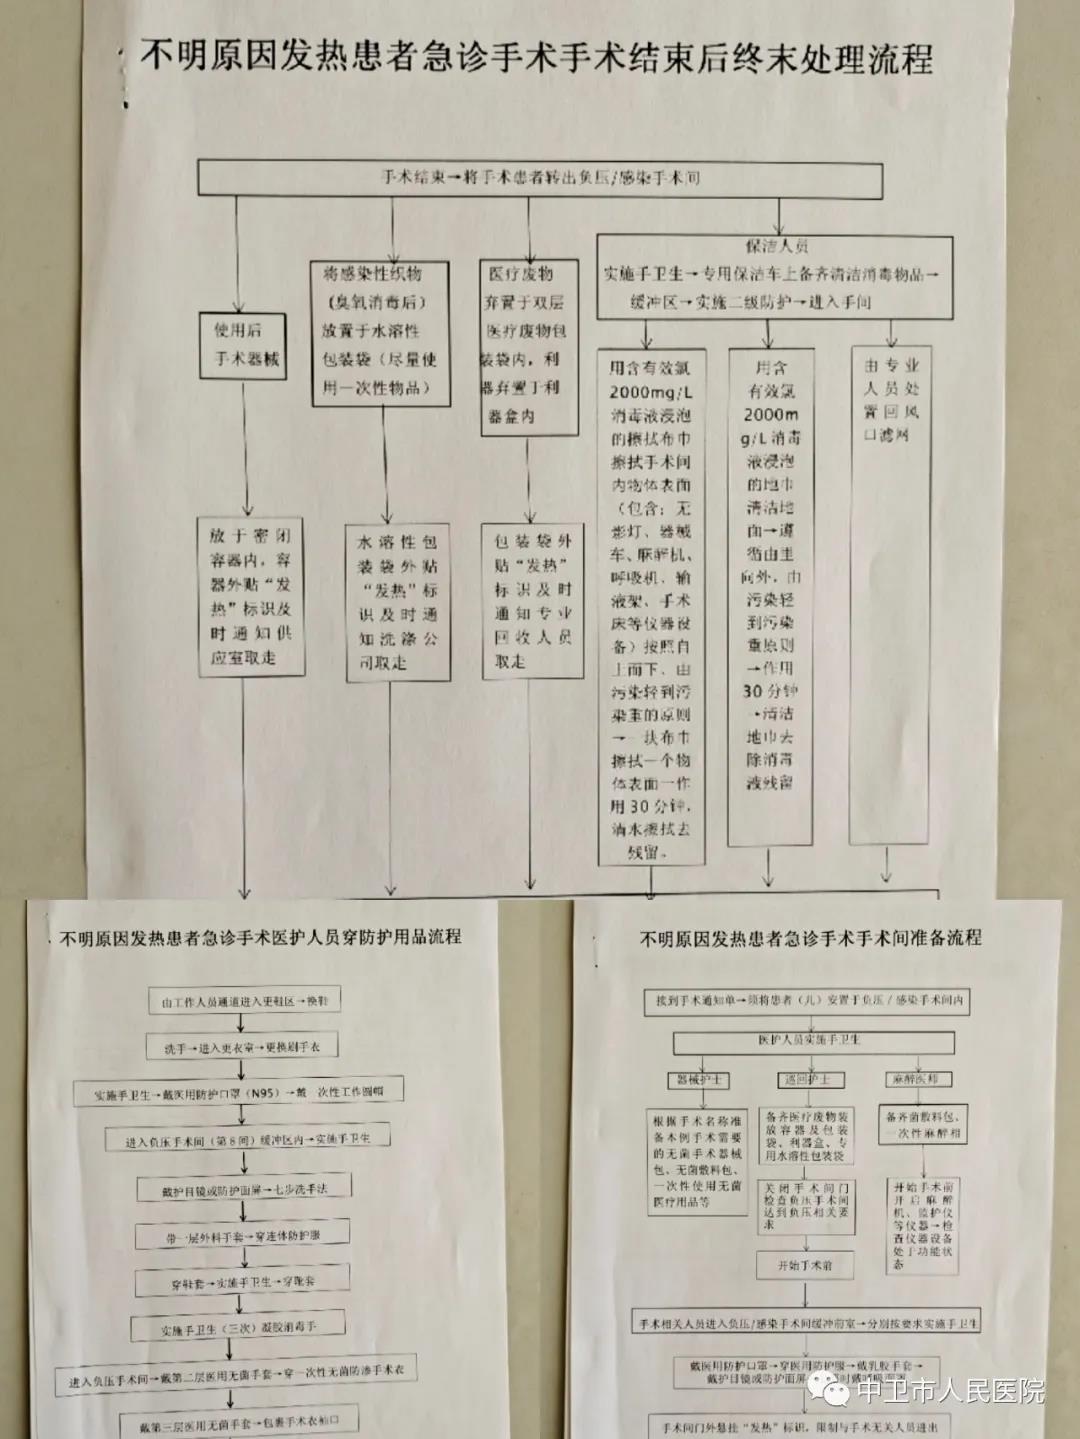 不明原因发热患者急诊手术手术结束后终末处理流程
手术结束→将手术患者转出负压/感染手术间
使用后
手术器械
将感染性织物
(臭氧消毒后)
放置于水溶性
包装袋(尽量使
用一次性物品)
医疗废物
弃置于双层
医疗废物包
装袋内，利
器弃置于利
器盒内
保洁人员
实施手卫生→专用保洁车上备齐清洁消毒物品→
缓冲区→实施二级防护→进入手间
放于密闭
容器内，容
器外贴“发
热”标识及
时通知供
应室取走
水溶性包
装袋外贴
“发热”标
识及时通
知洗涤公
司取走
包装袋外
贴“发热”
标识及时
通知专业
回收人员
取走
用含有效氯
2000mg/L
消毒液浸泡
的擦拭布巾
擦拭手术间
内物体表面
(包含：无
影灯、器械
车、麻醉机、
呼吸机、输
液架、手术
床等仪器设
备)按照自
上而下、由
污染轻到污
染重的原则
→一块布巾
擦拭一个物
体表面→作
用30分钟，
清水擦拭去
残留。
用含
有效氯
2000m
g/L消毒
液浸泡
的地巾
清洁地
面→遵
循由里
向外，由
污染轻
到污染
重原则
→作用
30分钟
→清洁
地巾去
除消毒
液残留
由专业
人员处
置回风
口滤网
不明原因发热患者急诊手术医护人员穿防护用品流程
由工作人员通道进入更鞋区→换鞋
洗手→进入更衣室→更换刷手衣
实施手卫生→戴医用防护口罩(N95)→戴一次性工作圆帽
进入负压手术间(第8间)缓冲区内→实施手卫生
戴护目镜或防护面屏→七步洗手法
带一层外科手套→穿连体防护服
穿鞋套→实施手卫生→穿靴套
实施手卫生(三次)凝胶消毒手
进入负压手术间→戴第二层医用无菌手套→穿一次性无菌防渗手术衣
戴第三层医用无菌手套→包裹手术衣袖口
不明原因发热患者急诊手术手术间准备流程
接到手术通知单→须将患者(儿)安置于负压/感染手术间内
医护人员实施手卫生
器械护士
巡回护士
麻醉医师
根据手术名称准
备本例手术需要
的无菌手术器械
包、无菌敷料包、
一次性使用无菌
医疗用品等
备齐医疗废物装
放容器及包装
袋、利器盒、专
用水溶性包装袋
备齐菌敷料包、
一次性麻醉相
关闭手术间门
检查负压手术间
达到负压相关要
求
开始手术前
开启麻醉
机、监护仪
等仪器→检
查仪器设备
处于功能状
态
开始手术前
手术相关人员进入负压/感染手术间缓冲前室→分别按要求实施手卫生
戴医用防护口罩→穿医用防护服→戴乳胶手套→
戴护目镜或防护面屏
手术间门外悬挂“发热”标识，限制与手术无关人员进出
中卫市人民医院